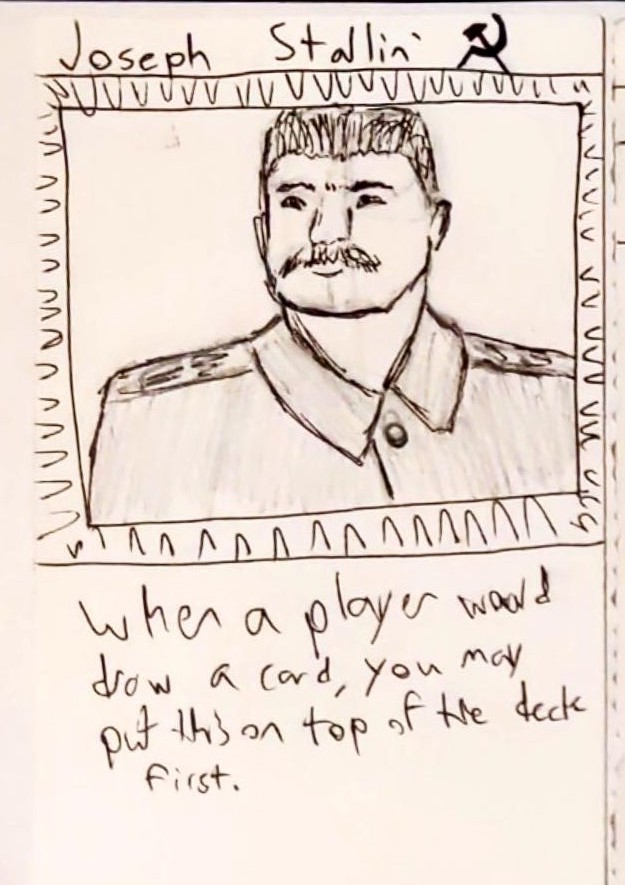 Joseph Stallin'
When a player would
draw a card, you may
put this on top of the deck
first.